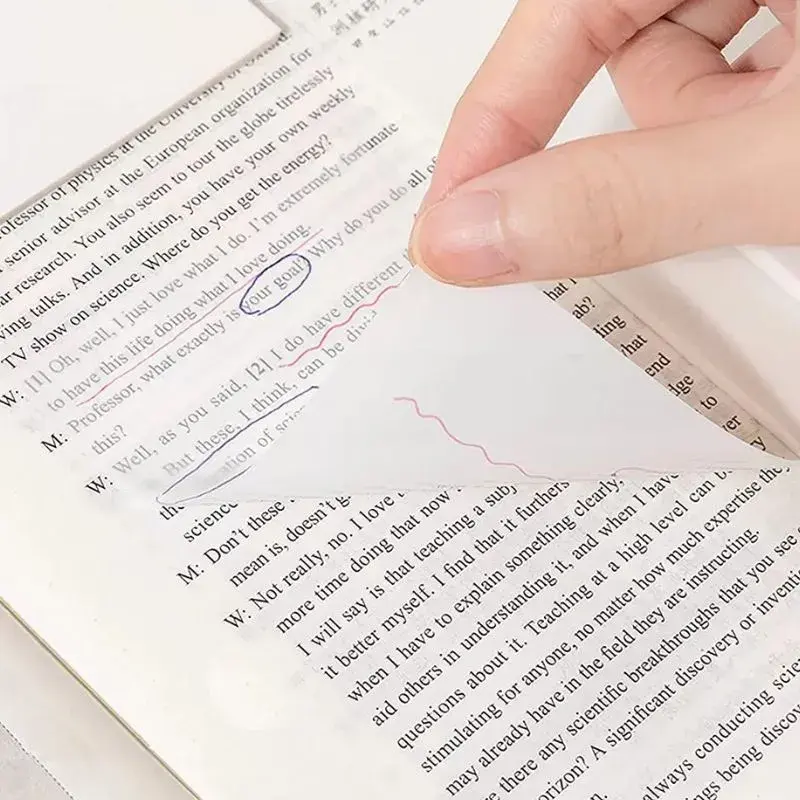 洲核研究
rofessor of physics at the University of Oxford.
senior advisor at the European organization for
ar research. You also seem to tour the globe tirelessly
ving talks. And in addition, you have your own weekly
TV show on science. Where do you get the energy?
W: [1] Oh, well, I just love what I do. I'm extremely fortunate
to have this life doing what I love doing.
M: Professor, what exactly is your goal? Why do you do all of
this?
W: Well, as you said, [2] I do have different
But these, I think, can be divi
ation of scien
the
science
M: Don't these
mean is, doesn't
W: Not really, no. I love
more time doing that now
I will say is that teaching a subj
it better myself. I find that it furthers
when I have to explain something clearly,
aid others in understanding it, and when I have
questions about it. Teaching at a high level can be
stimulating for anyone, no matter how much expertise the
may already have in the field they are instructing
e there any scientific breakthroughs that you see
orizon? A significant discovery or inventi
always conducting scie
ngs being discov
ab?
nding
end
edge
to
ver